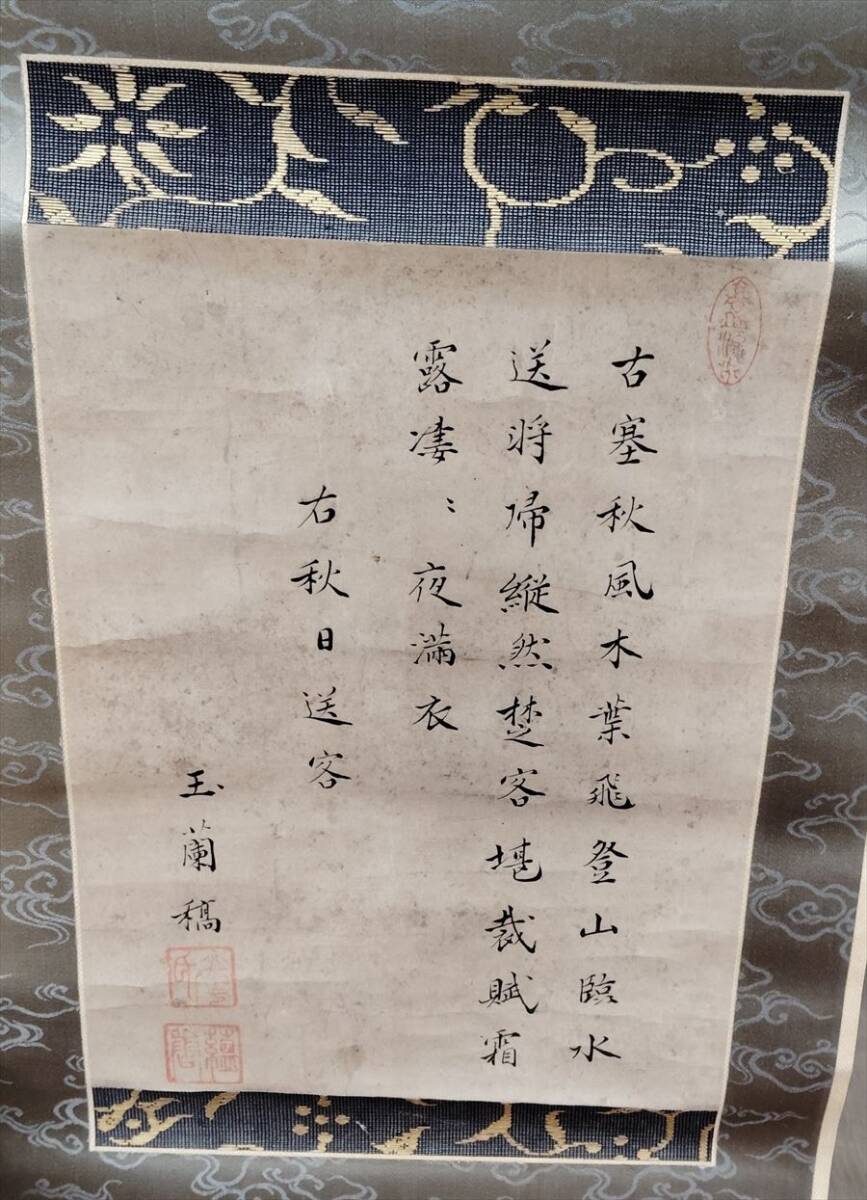 古塞秋風木葉飛登山臨水
送将帰縦然楚客堪裁賦霜
露凄〻夜満衣
右秋日送客
玉蘭稿